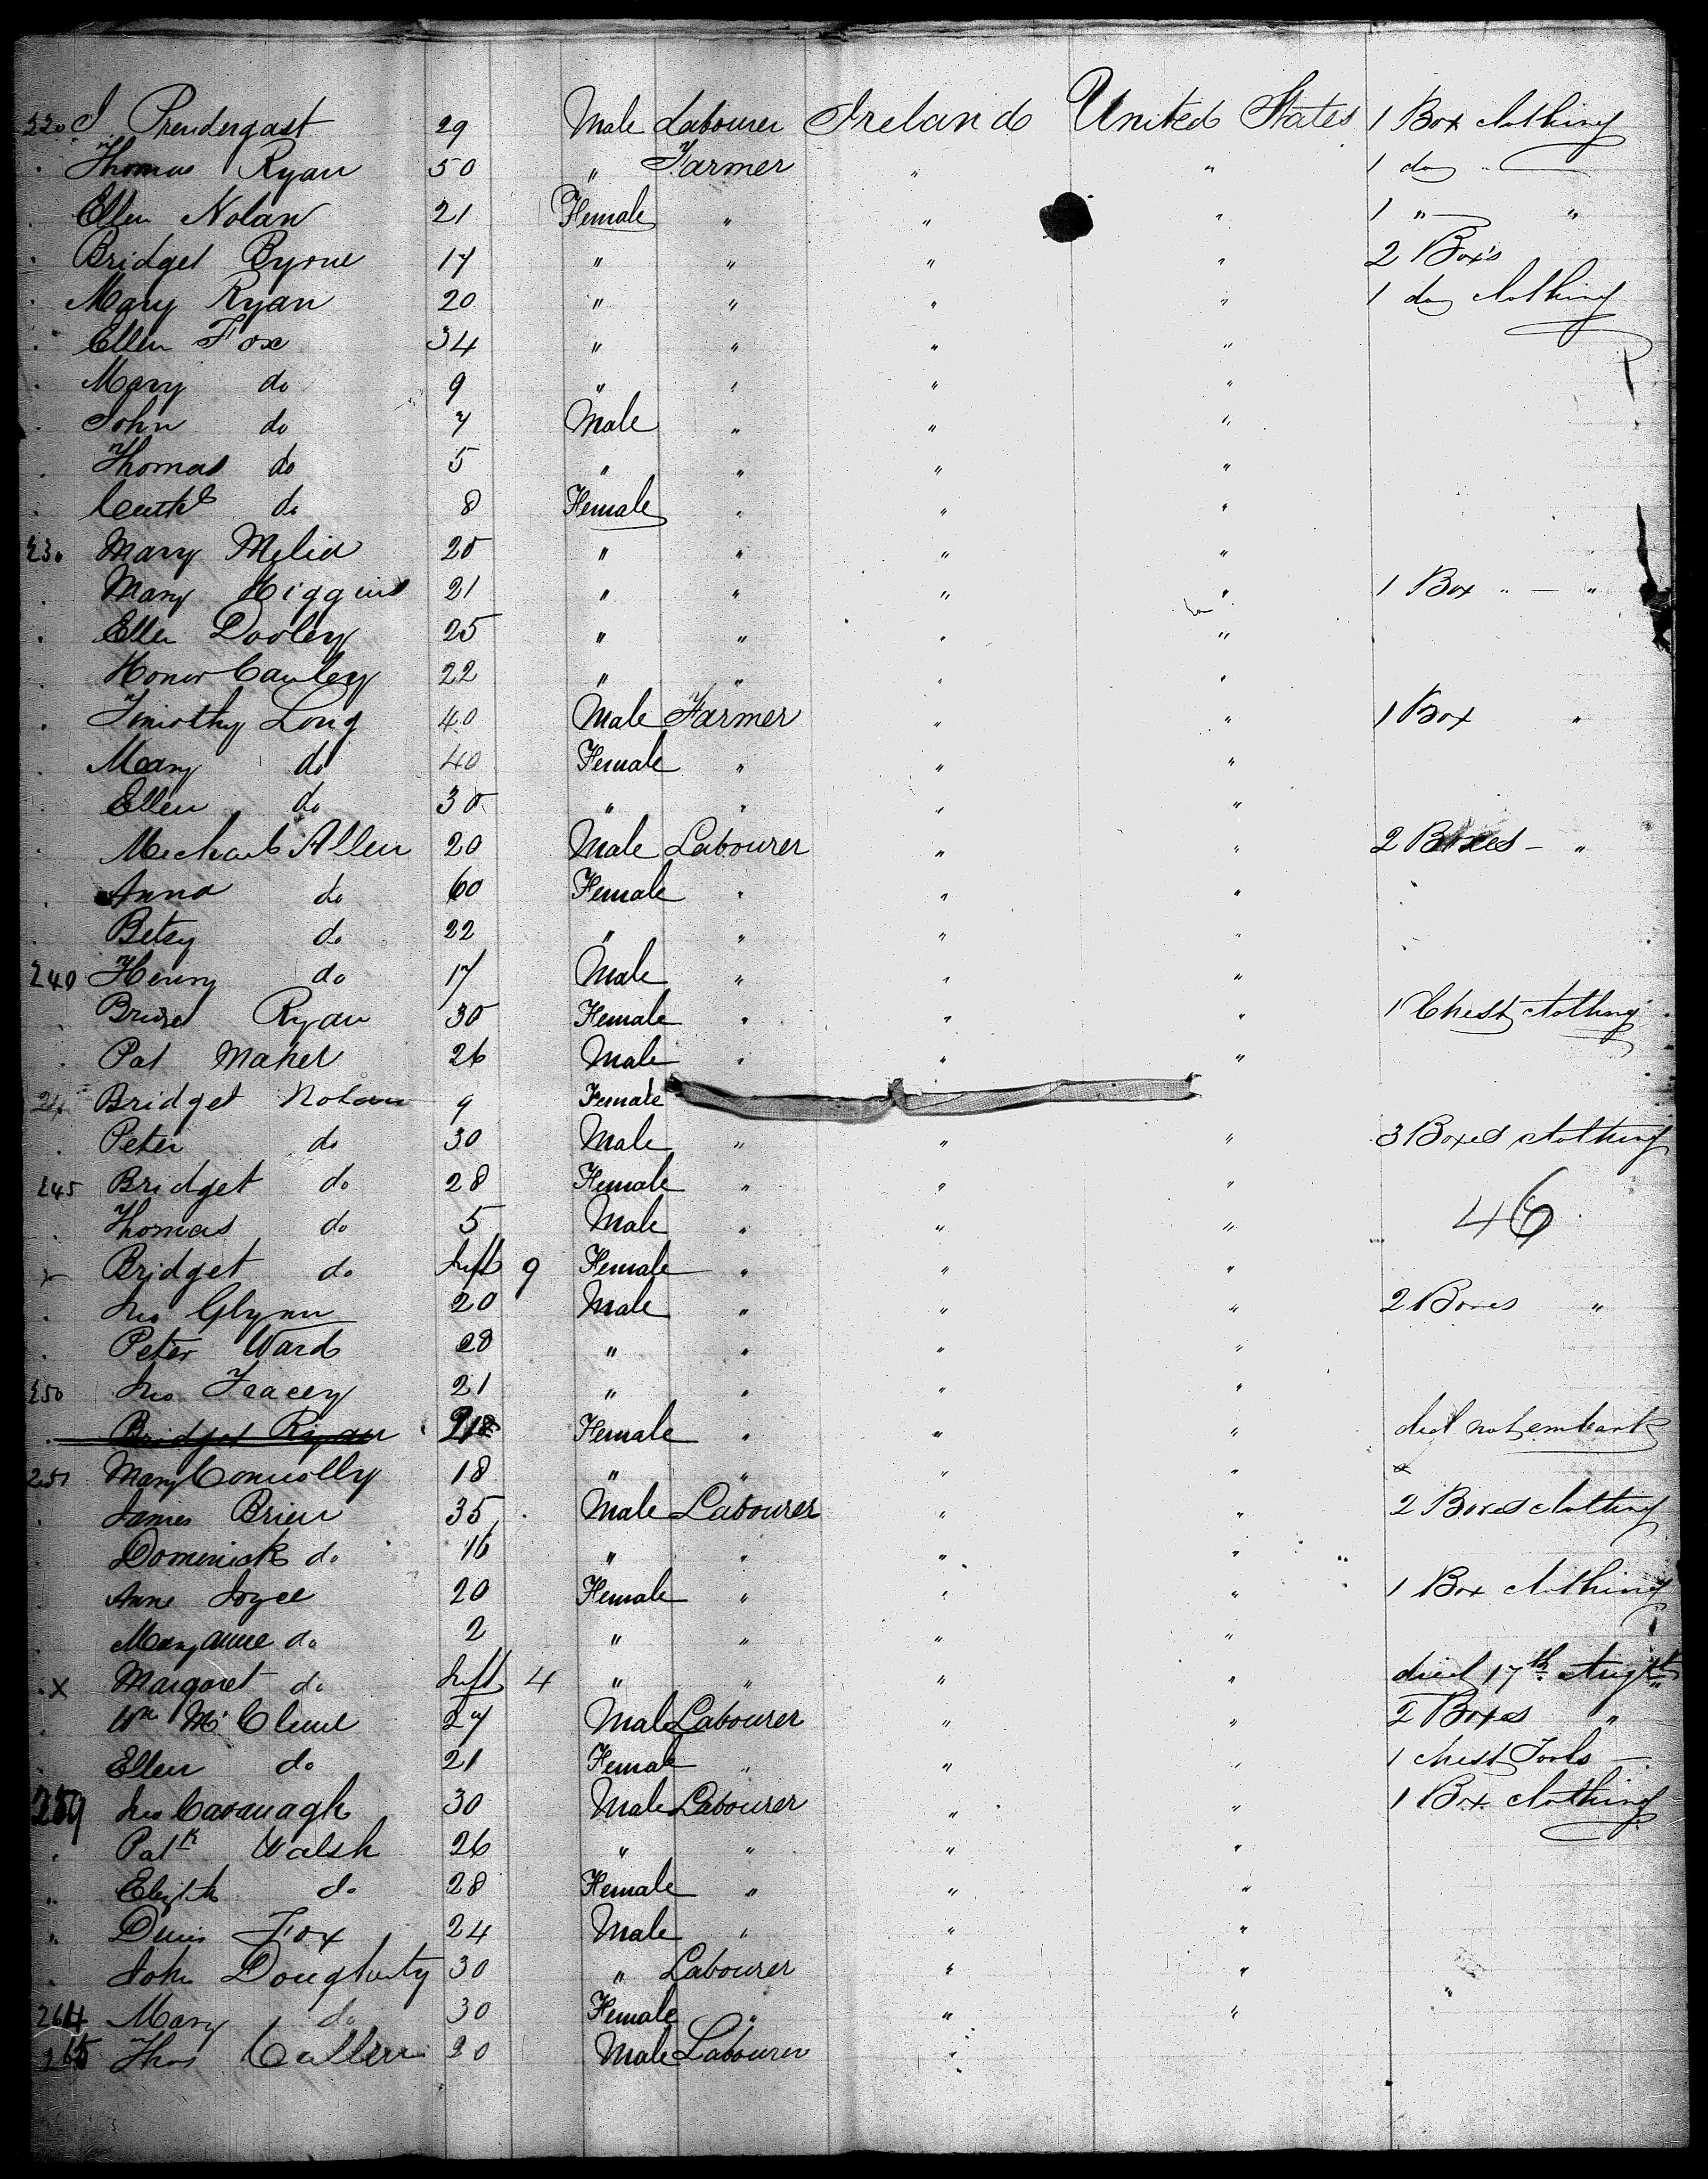 220 J Prendergast 29 Male Labourer Ireland United States 1 Box clothing
Thomas Ryan 50 " Farmer " " 1 do "
Ellen Nolan 21 Female " " " 1 " "
Bridget Byrne 17 " " " " 2 Box's
Mary Ryan 20 " " " " 1 do clothing
Ellen Fox 34 " " " "
Mary do 9 " " " "
John do 7 Male " " "
Thomas do 5 " " " "
do 8 Female " " "
230 Mary Melia 25 " " " "
Mary Higgins 21 " " " " 1 Box " - "
Ellen Dooley 25 " " " "
Honor Cauley 22 " " " "
Timothy Long 40 Male Farmer " " 1 Box "
Mary do 40 Female " " "
Ellen do 30 " " " "
Michael Allen 20 Male Labourer " " 2 Boxes - "
Anna do 60 Female " " "
Betsy do 22 " " " "
240 Henry do 17 Male " " "
Ryan 30 Female " " " 1 Chest clothing
Pat Maher 26 Male " " "
Bridget Nolan 9 Female
Peter do 30 Male " " " 3 Boxes clothing
245 Bridget do 28 Female " " "
Thomas do 5 Male " " " 46
Bridget do Inft 9 Female " " "
Jno Glynn 20 Male " " " 2 Boxes "
Peter Ward 28 " " " "
250 Jno Tracey 21 " " " "
Bridget Ryan Female " " " did not embark
251 Mary Connolly 18 " " " "
James Brien 35 Male Labourer " " 2 Boxes clothing
Dominick do 16 " " " "
Anne Joyce 20 Female " " " 1 Box clothing
Maryanne do 2 " " " "
x Margaret do Inft 4 " " " " died 17th Augst
Wm McClune 27 Male Labourer " " 2 Boxes "
Ellen do 21 Female " " " 1 chest Tools -
259 Jno Cavanagh 30 Male Labourer " " 1 Box clothing
Patk Walsh 26 " " " "
" Elizth do 28 Female " " "
" Denis Fox 24 Male " " "
John Dougherty 30 " Labourer " "
264 Mary do 30 Female " " "
265 Thos Cullen 20 Male Labourer "